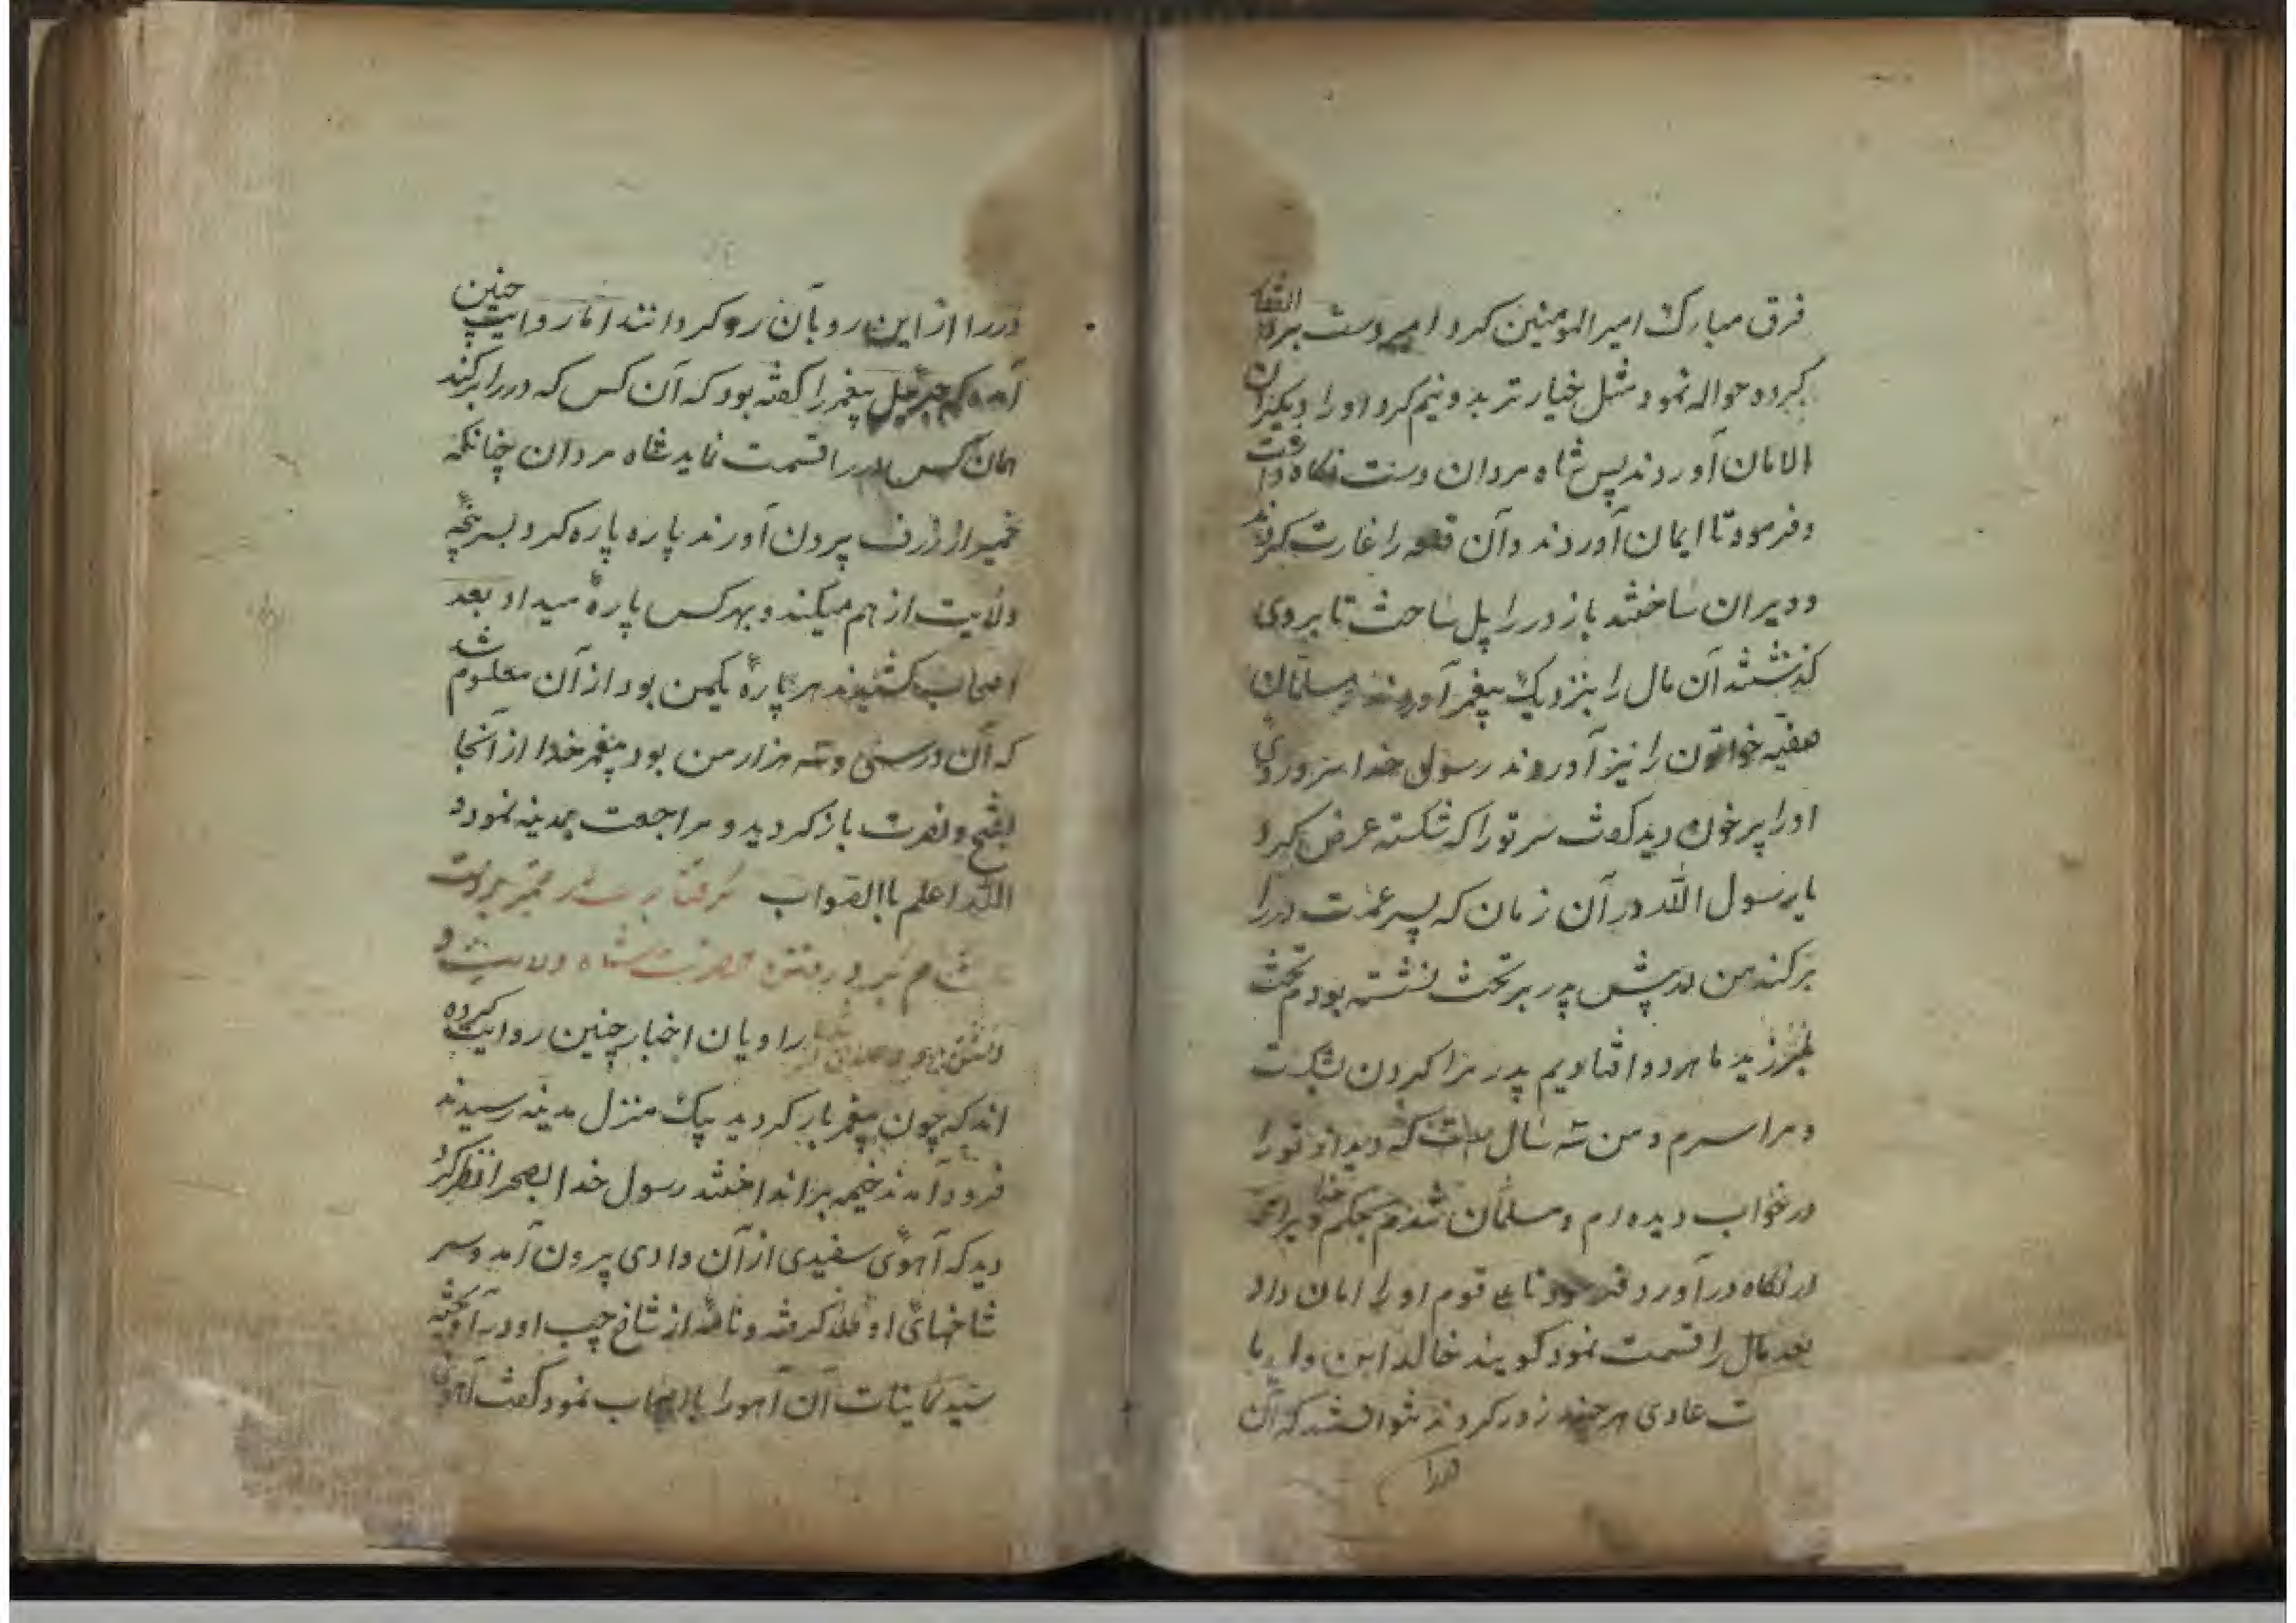 فرق مبارک امیرالمومنین کرد امیر دست بر
کرده حواله نمود مثل خیار تر بدو نیم کرد او را دیگران
الامان آوردند پس شاه مردان دست نگاه داشت
و فرمود تا ایمان آوردند و آن قلعه را غارت کردند
و ویران ساختند باز در را پل ساخت تا بروی
گذشتند آن مال را بنزدیک پیغمبر آوردند و مسلمانان
صفیه خواتون را نیز آوردند رسول خدا سر و روی
او را پر خون دید گفت سر تو را که شکسته عرض کرد
یا رسول الله در آن زمان که پسر عمت در را
برکند من در پیش پدر بر تخت نشسته بودم تخت
بلرزید ما هر دو افتادیم پدر مرا گردن بشکست
و مرا سرم و من سه سال است که دیدار تو را
در خواب دیده‌ام و مسلمان شدم بحکم خدا ویرا
در نکاه درآورد و قوم او را امان داد
بعد مال را قسمت نمود گویند خالد ابن ولید با
عادی هر چند زور کردند نتوانستند که آن
در را
در را از این رو بآن رو گردانند اما روایت چنین
آمده که جبرئیل پیغمبر را گفته بود که آن کس که در را برکند
همان کس در را قسمت نماید شاه مردان چنانکه
خمیر از ظرف بیرون آورند پاره پاره کرد و بسر پنجه
ولایت از هم میکند و بهر کس پارهٔ میداد بعد
اصحاب کشیدند هر پارهٔ یکمن بود از آن معلوم شد
که آن در سی و سه هزار من بود پیغمبر خدا از آنجا
بفتح و نصرت باز گردید و مراجعت بمدینه نمود
الله اعلم باالصواب
حضرت شاه ولایت و
راویان اخبار چنین روایت کرده
اند که چون پیغمبر باز گردید بیک منزل مدینه رسیدند
فرود آمدند خیمه بزاند اختند رسول خدا بصحرا نظر کرد
دید که آهوی سفیدی از آن وادی بیرون آمد و سر
شاخهای او طلا گرفته و نامهٔ از شاخ چپ او در آویخته
سید کاینات آن آهو را با اصحاب نمود گفت آهوی